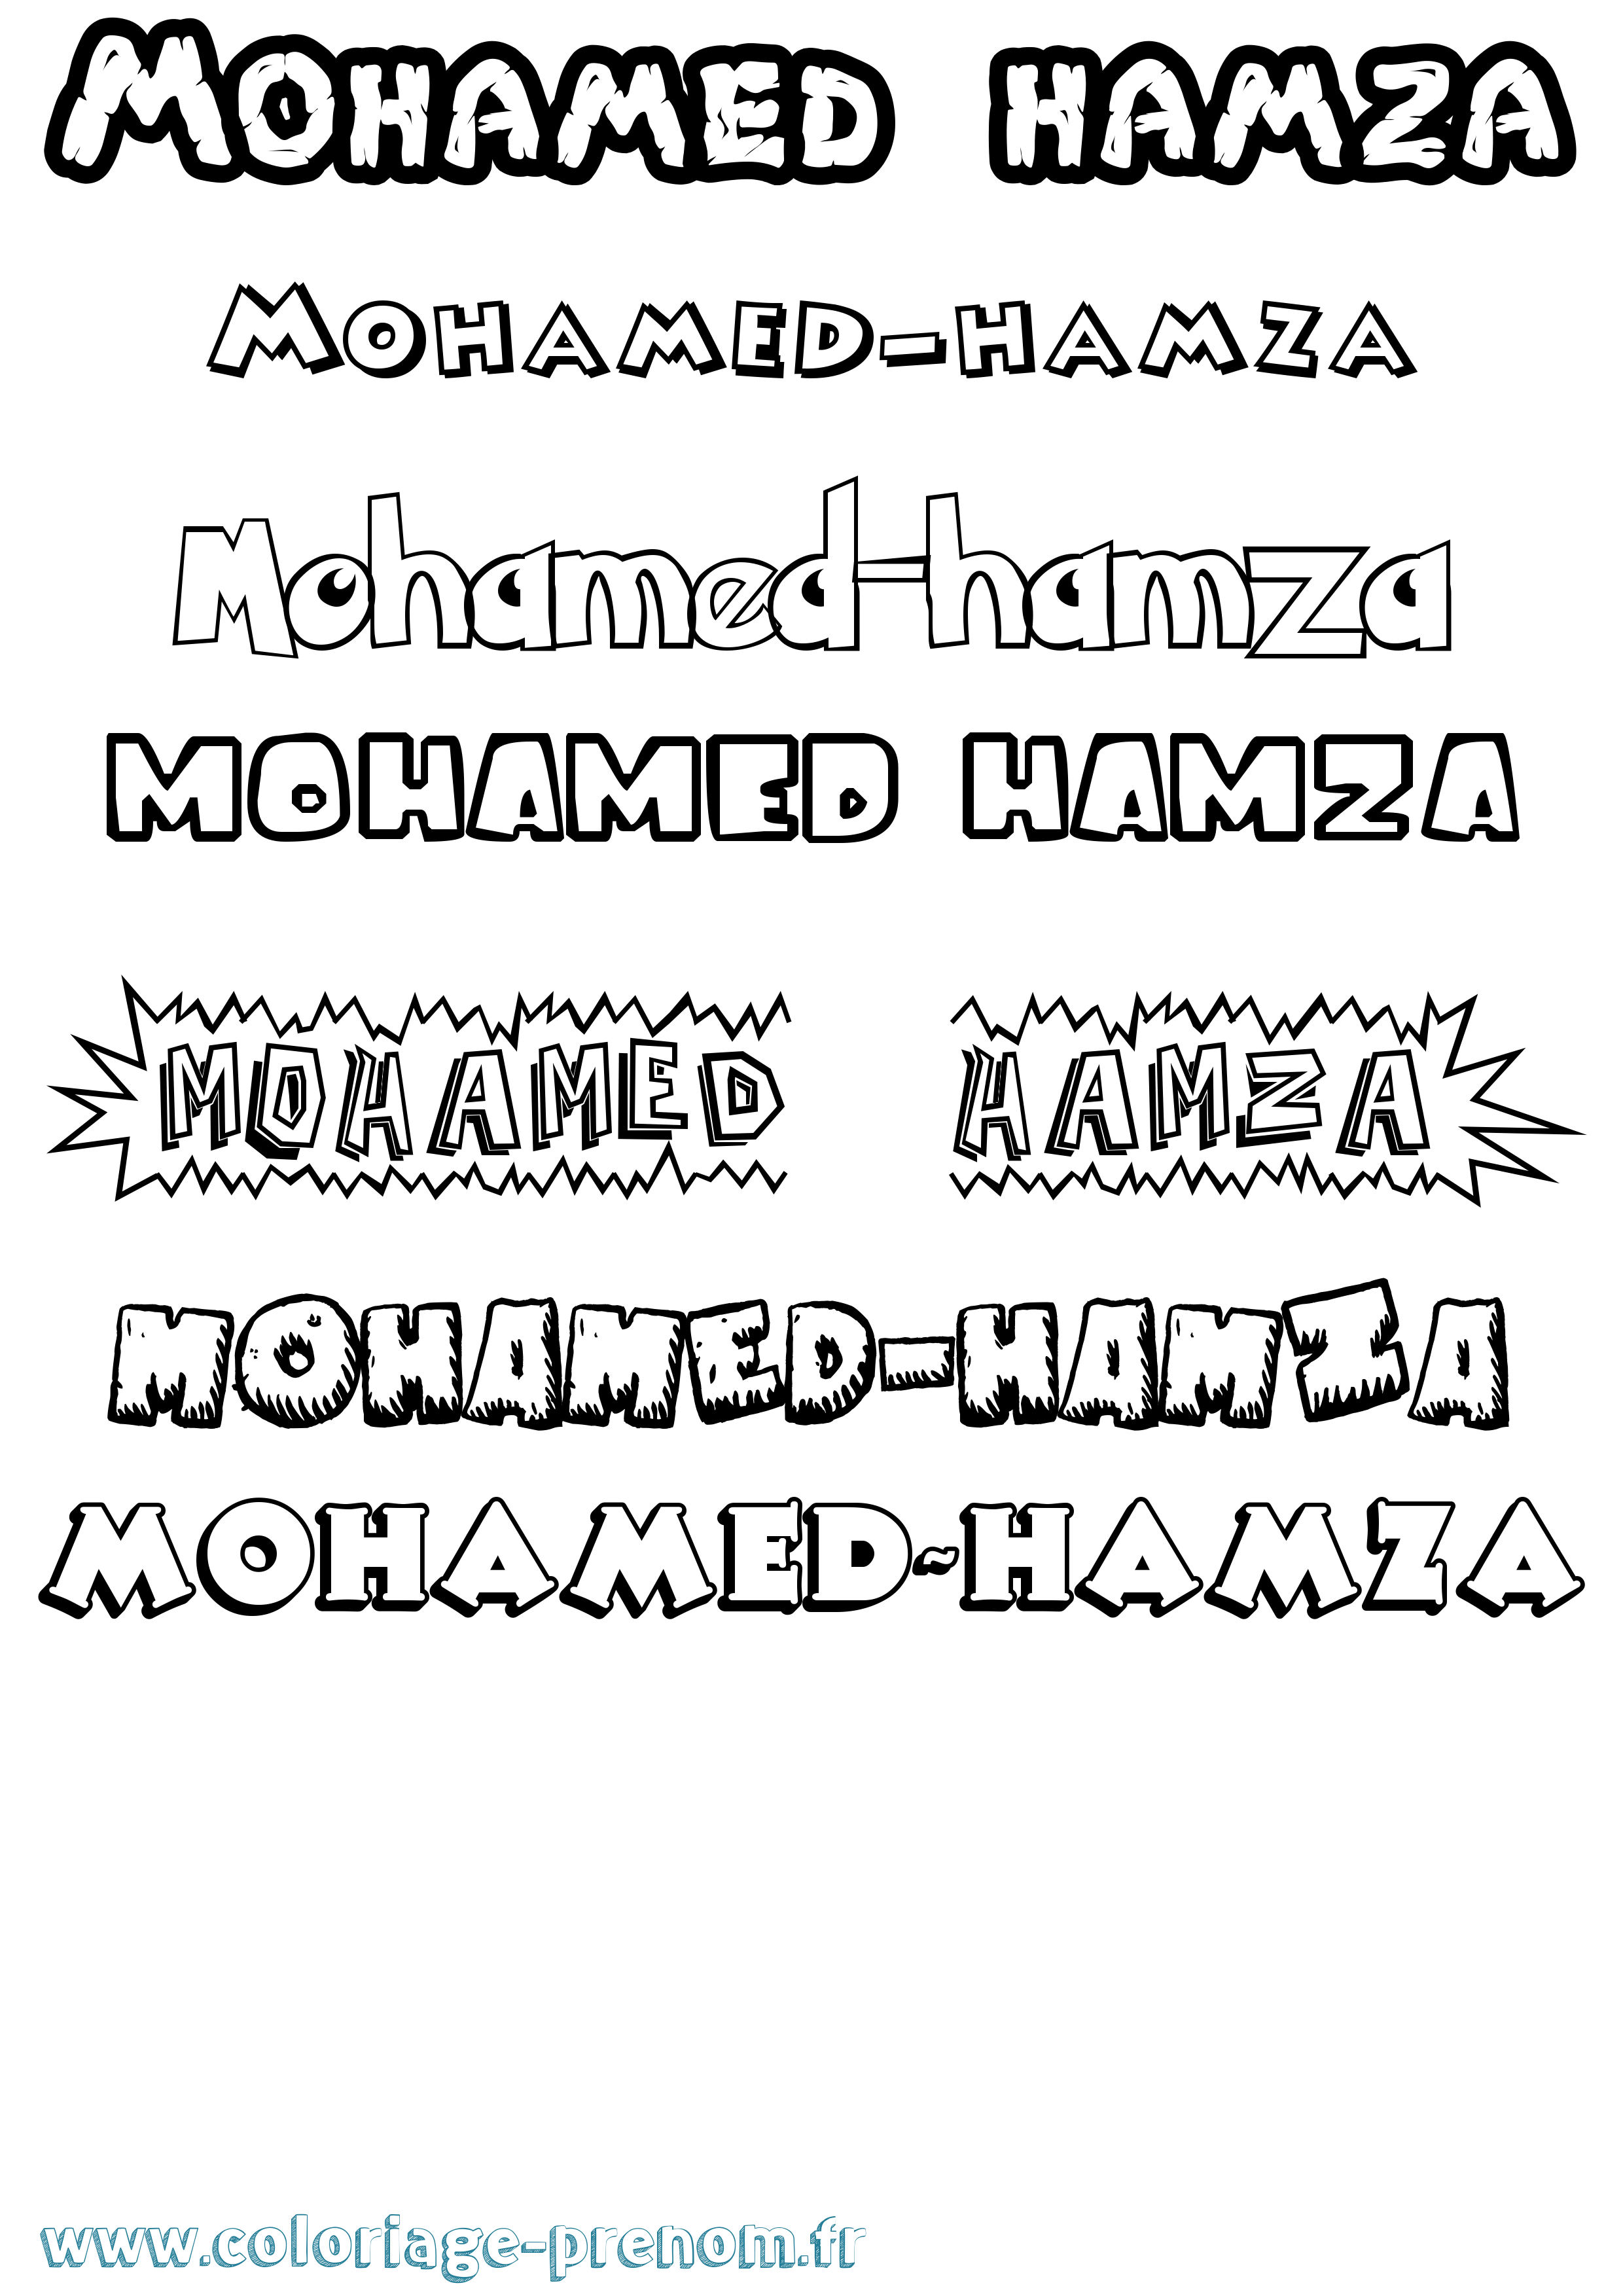 MOHAMED HAMZA
MOHAMED-HAMZA
Mohamed-hamza
MOHAMED HAMZA
MOHAMED HAMZA
MOHAMED-HAMZA
MOHAMED-HAMZA
www.coloriage-prenom.fr